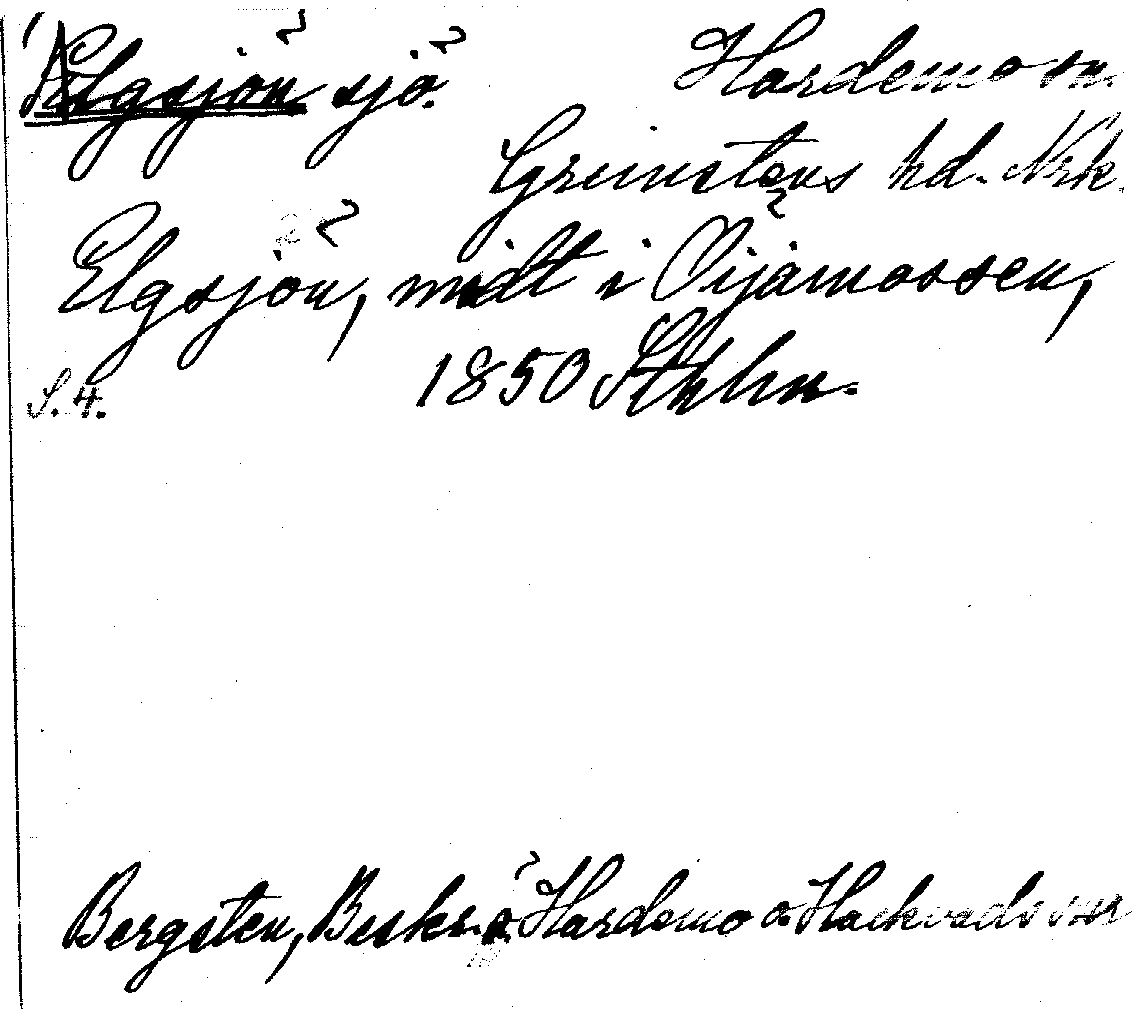 Älgsjön sjö.
Hardemo sn.
Grimstens hd. Nrk.
Elgsjön, midt i Öijamossen,
1850 Sthlm.
S. 4.
Bergsten, Beskr. ö. Hardemo o. Hackvads snr